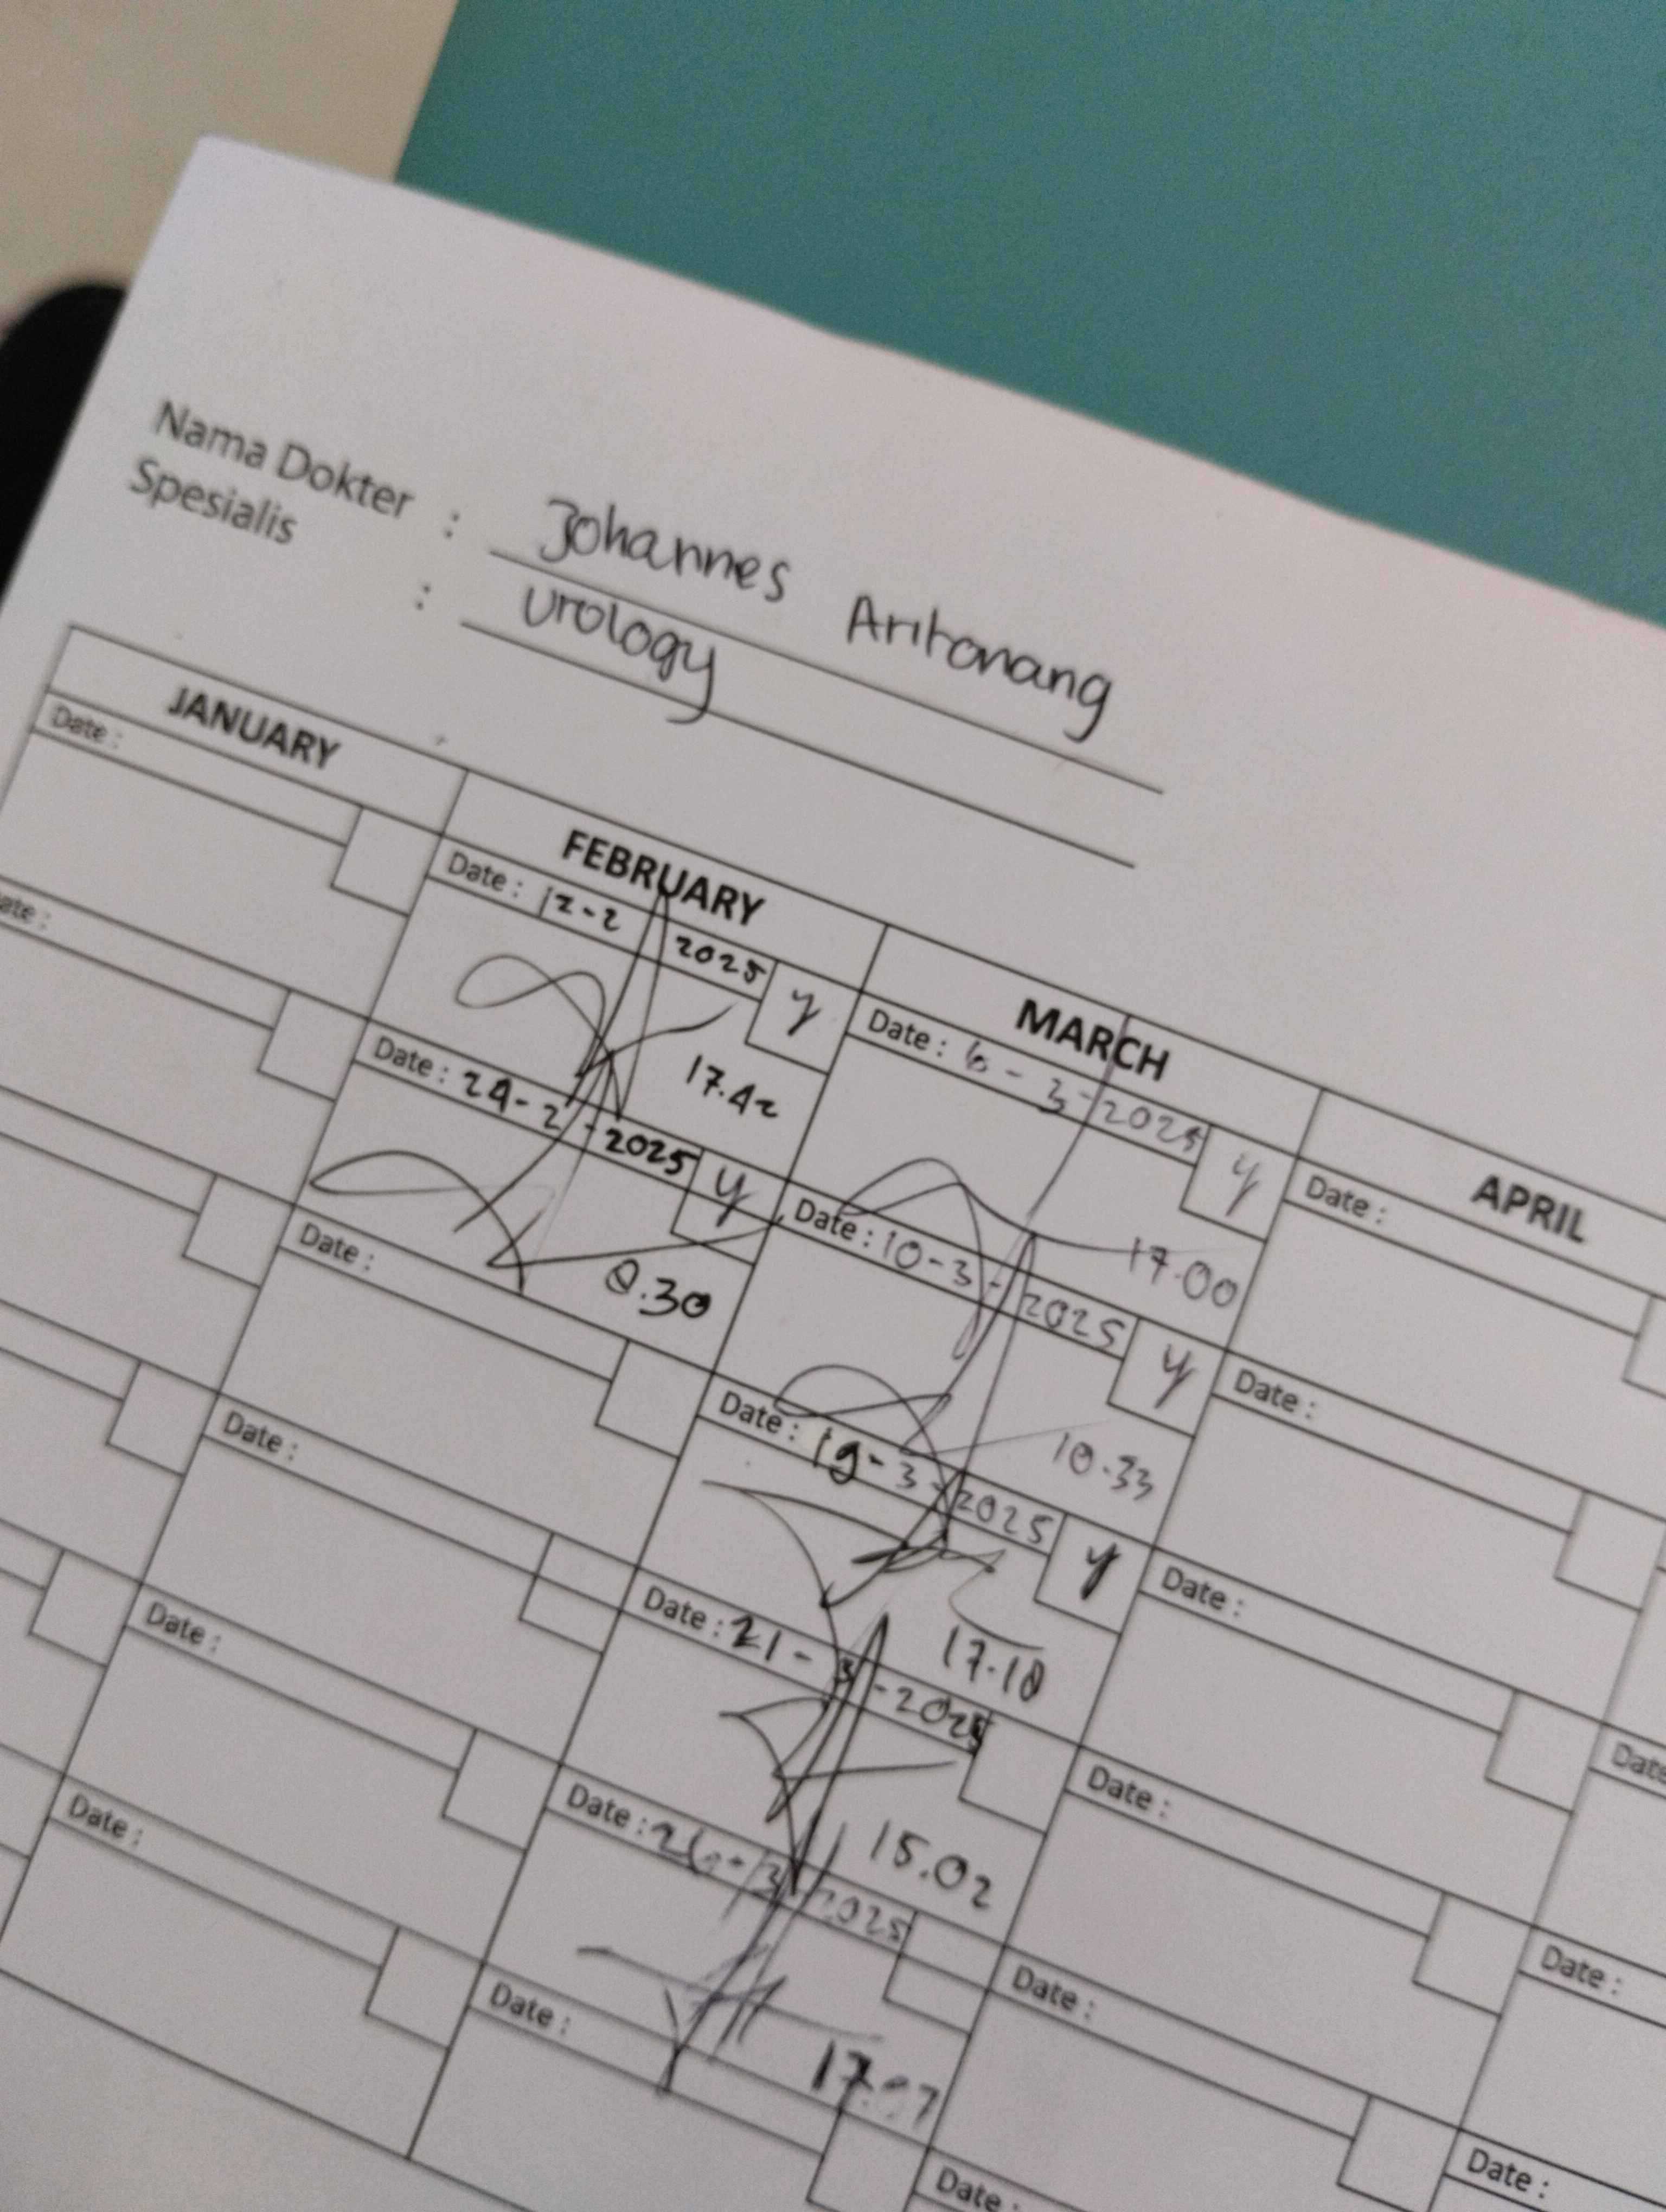 Nama Dokter : Johannes Aritonang
Spesialis : Urology
JANUARY FEBRUARY MARCH APRIL
Date :
Date : 12-2 2025 y
17.42
Date : 6-3-2025 y
17.00
Date :
Date :
Date : 24-2-2025 y
8.30
Date : 10-3-2025 y
10.33
Date :
Date :
Date : 19-3-2025 y
17.18
Date :
Date :
Date : 21-3-2025
15.02
Date :
Date :
Date :
Date : -3-2025
Date :
Date :
Date :
Date :
Date :
Date :
Date :